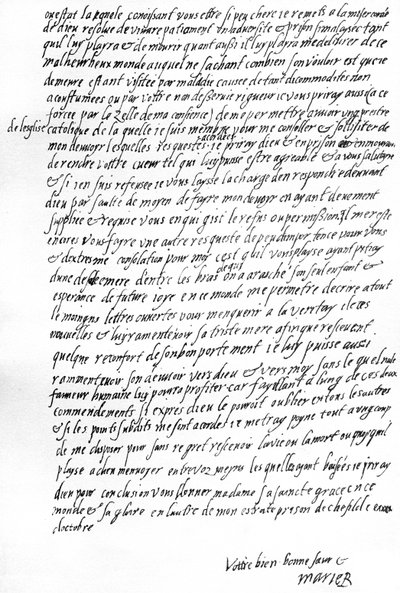 ou estat laquele conoissant vous estre si peu chere je remets a la misericorde
de dieu resolue de vivre patiament en ladversite & prison sans lesse tant
quil luy playra & de mourir quant aussi il luy playra me deslivrer de ce
malheurheux monde auquel ne sachant combien son vouloir est que je
demeure estant visitée par maladie causee de tant dicommodites non
acoustumees ou par votre non desservie rigueur je vous priray aussi (a ce
forcee par le zelle de ma consience) de me permettre avvoir une prestre
de leglise catolique de la quelle je suis membre pour me consoller & solisiter de
mon devvoir lesquelles requestes je priray dieu & en prison
de rendre votre cueur tel qui luy puisse estre agreable & a vous salutayre
& si jen suis refusee je vous laysse la charge den respondre devant
dieu par faulte de moyen de fayre mon devvoir en ayant deuement
supplice & requise vous en qui gist le refus ou permission il me reste
encores vous fayre une autre requeste de peu dimportence pour vous
& dextresme consolation pour moy cest quil vous playse ayant pitay
dune desolee mere dentre les bras de qui on a arasché son seul enfant &
esperance de future joye en ce monde me permetre decrire atout
le moingns lettres ouvertes pour menquerir a la veritay de ces
nouvelles & luy ramentevoir sa triste mere afin que resevent
quelque reconfort de son bon portement je luy puisse aussi
ramentevoir son devvoir vers dieu & vers moy sans le quel nule
faweur humaine luy pouvra profister car fayllant a lung de ces deux
commendements si expres dieu le pouroit oublier en tous les autres
& si les points susdits me sont acordes je metray peyne tout aveq temp
de me disposer pour sans regret resevoir la vie ou la mort ou quoy quil
playse a dieu menvoyer entre vos meyns les quelles ayant baisees je priray
dieu pour conclusion vous donner madame sa saincte grace en ce
monde & sa gloire en lautre de mon estrate prison de chefild ce
doctobre
Votre bien bonne seur &
MARIE R